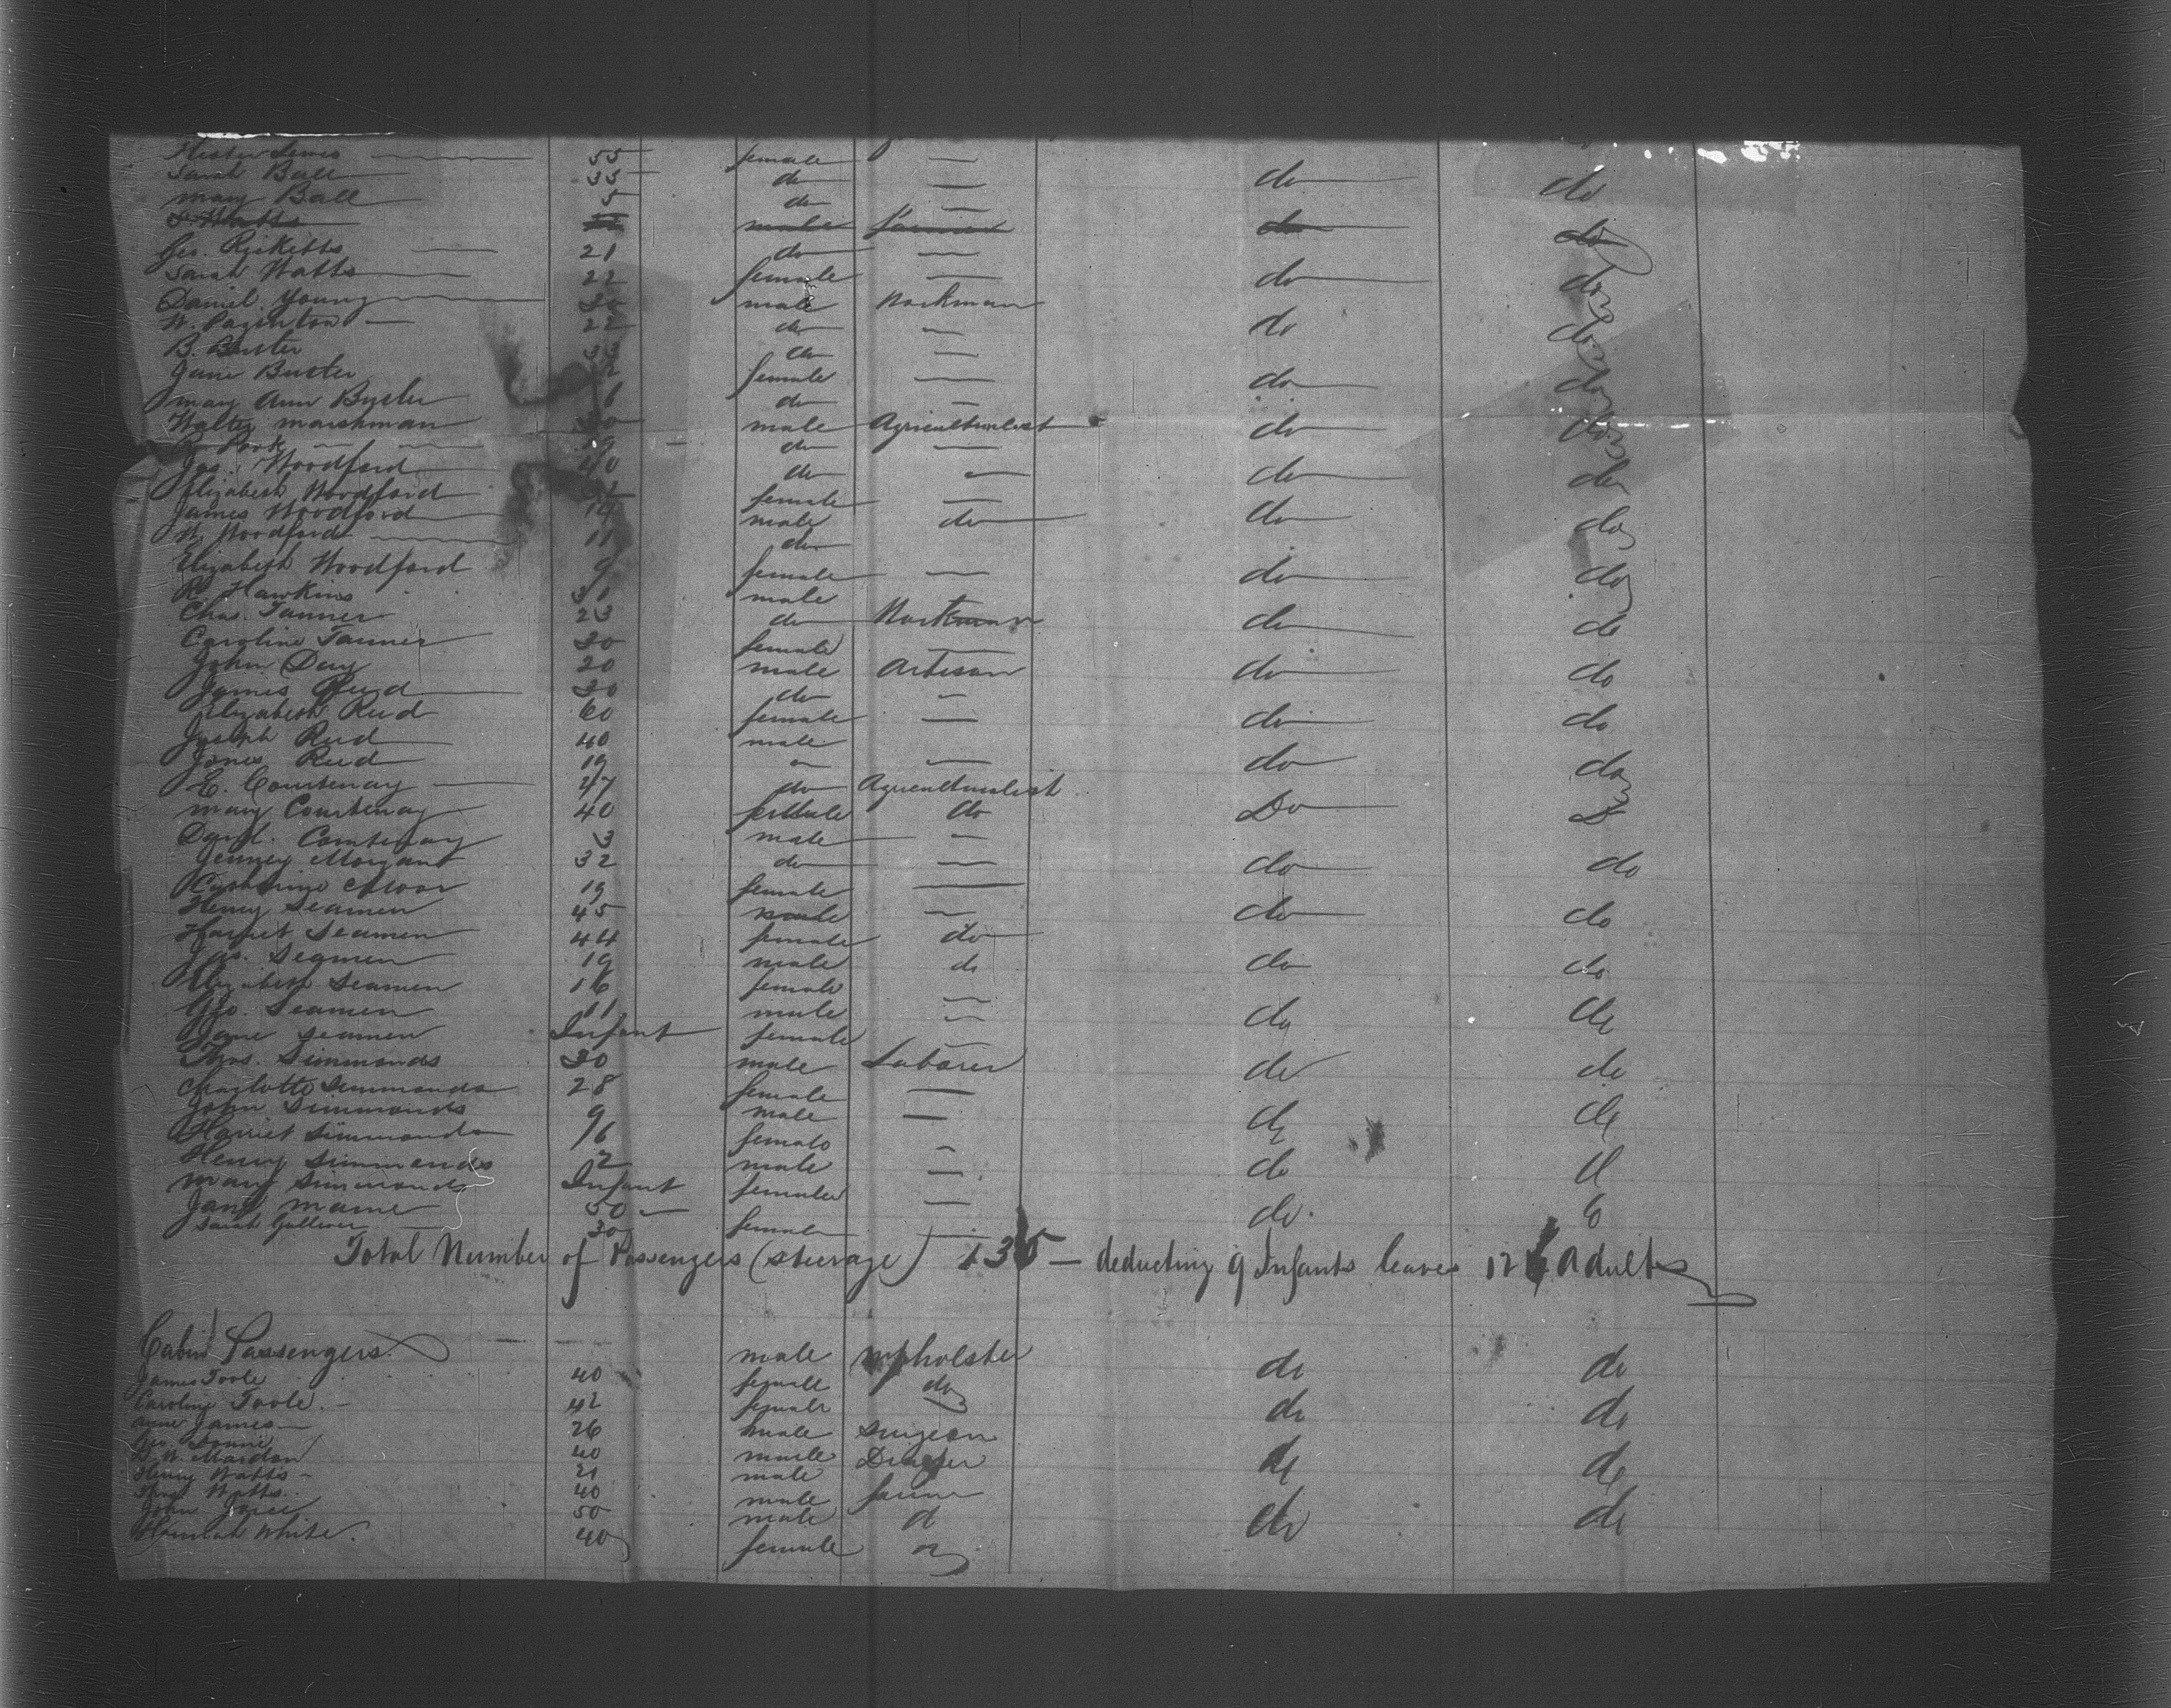 Hester Lewis 55 female —
Sarah Ball 35 do — do do
Mary Ball 5 do —
S Watts male farmer do do
Geo. Ricketts 21 do —
Sarah Watts 22 female — do do
Daniel Young 30 male Workman
W. Paginton 22 do — do do
B. Buster do —
Jane Buster female — do do
Mary Ann Buster 6 do —
Walter Marshman 30 male Agriculturalist do do
R. Pook 19 do —
Jas. Woodford 40 do — do do
Elizabeth Woodford female —
James Woodford 14 male do do do
W. Woodford 11 do
Elizabeth Woodford 9 female — do do
R. Hawkins 31 male
Chas. Tanner 23 do Workman do do
Caroline Tanner 30 female —
John Day 20 male Artisan do do
James Reed 30 do —
Elizabeth Reed 60 female — do do
Joseph Reed 40 male
Jones Reed 19 — do do
E. Courtenay 47 do Agriculturalist
Mary Courtenay 40 female do Do D
Danl. Courtenay 3 male —
Jenney Morgan 32 do — do do
Catherine Moor 19 female —
Henry Seamen 45 male — do do
Harriet Seamen 44 female do
Jas. Seamen 19 male do do do
Elizabeth Seamen 16 female
Geo. Seamen 11 male — do do
Jane Seamen Infant female —
Thos. Simmonds 30 male Laborer do do
Charlotte Simmonds 28 female —
John Simmonds 9 male — do do
Harriet Simmonds 6 female
Henry Simmonds 2 male — do d
Mary Simmonds Infant female —
Jane 50 — — do
Sarah Gulliver 30 female —
Total Number of Passengers (steerage) 135 — deducting 9 Infants leaves 126 Adults
Cabin Passengers
James Toole 40 male upholster do do
Caroline Toole. 42 female do
Anne James 26 female do do
Geo. 40 male surgeon
W. Mardon 21 male Draper do do
Henry Watts 40 male
Watts male farmer
John Joyce 50 male d do do
Hannah White. 40 female